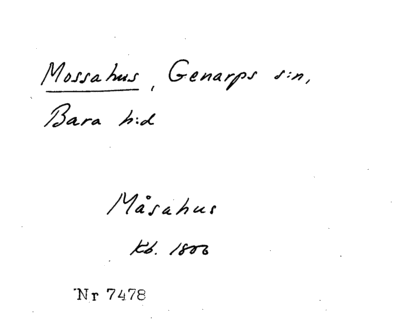 Mossahus, Genarps s:n,
Bara h:d
Måsahus
Kb. 1806
Nr 7478